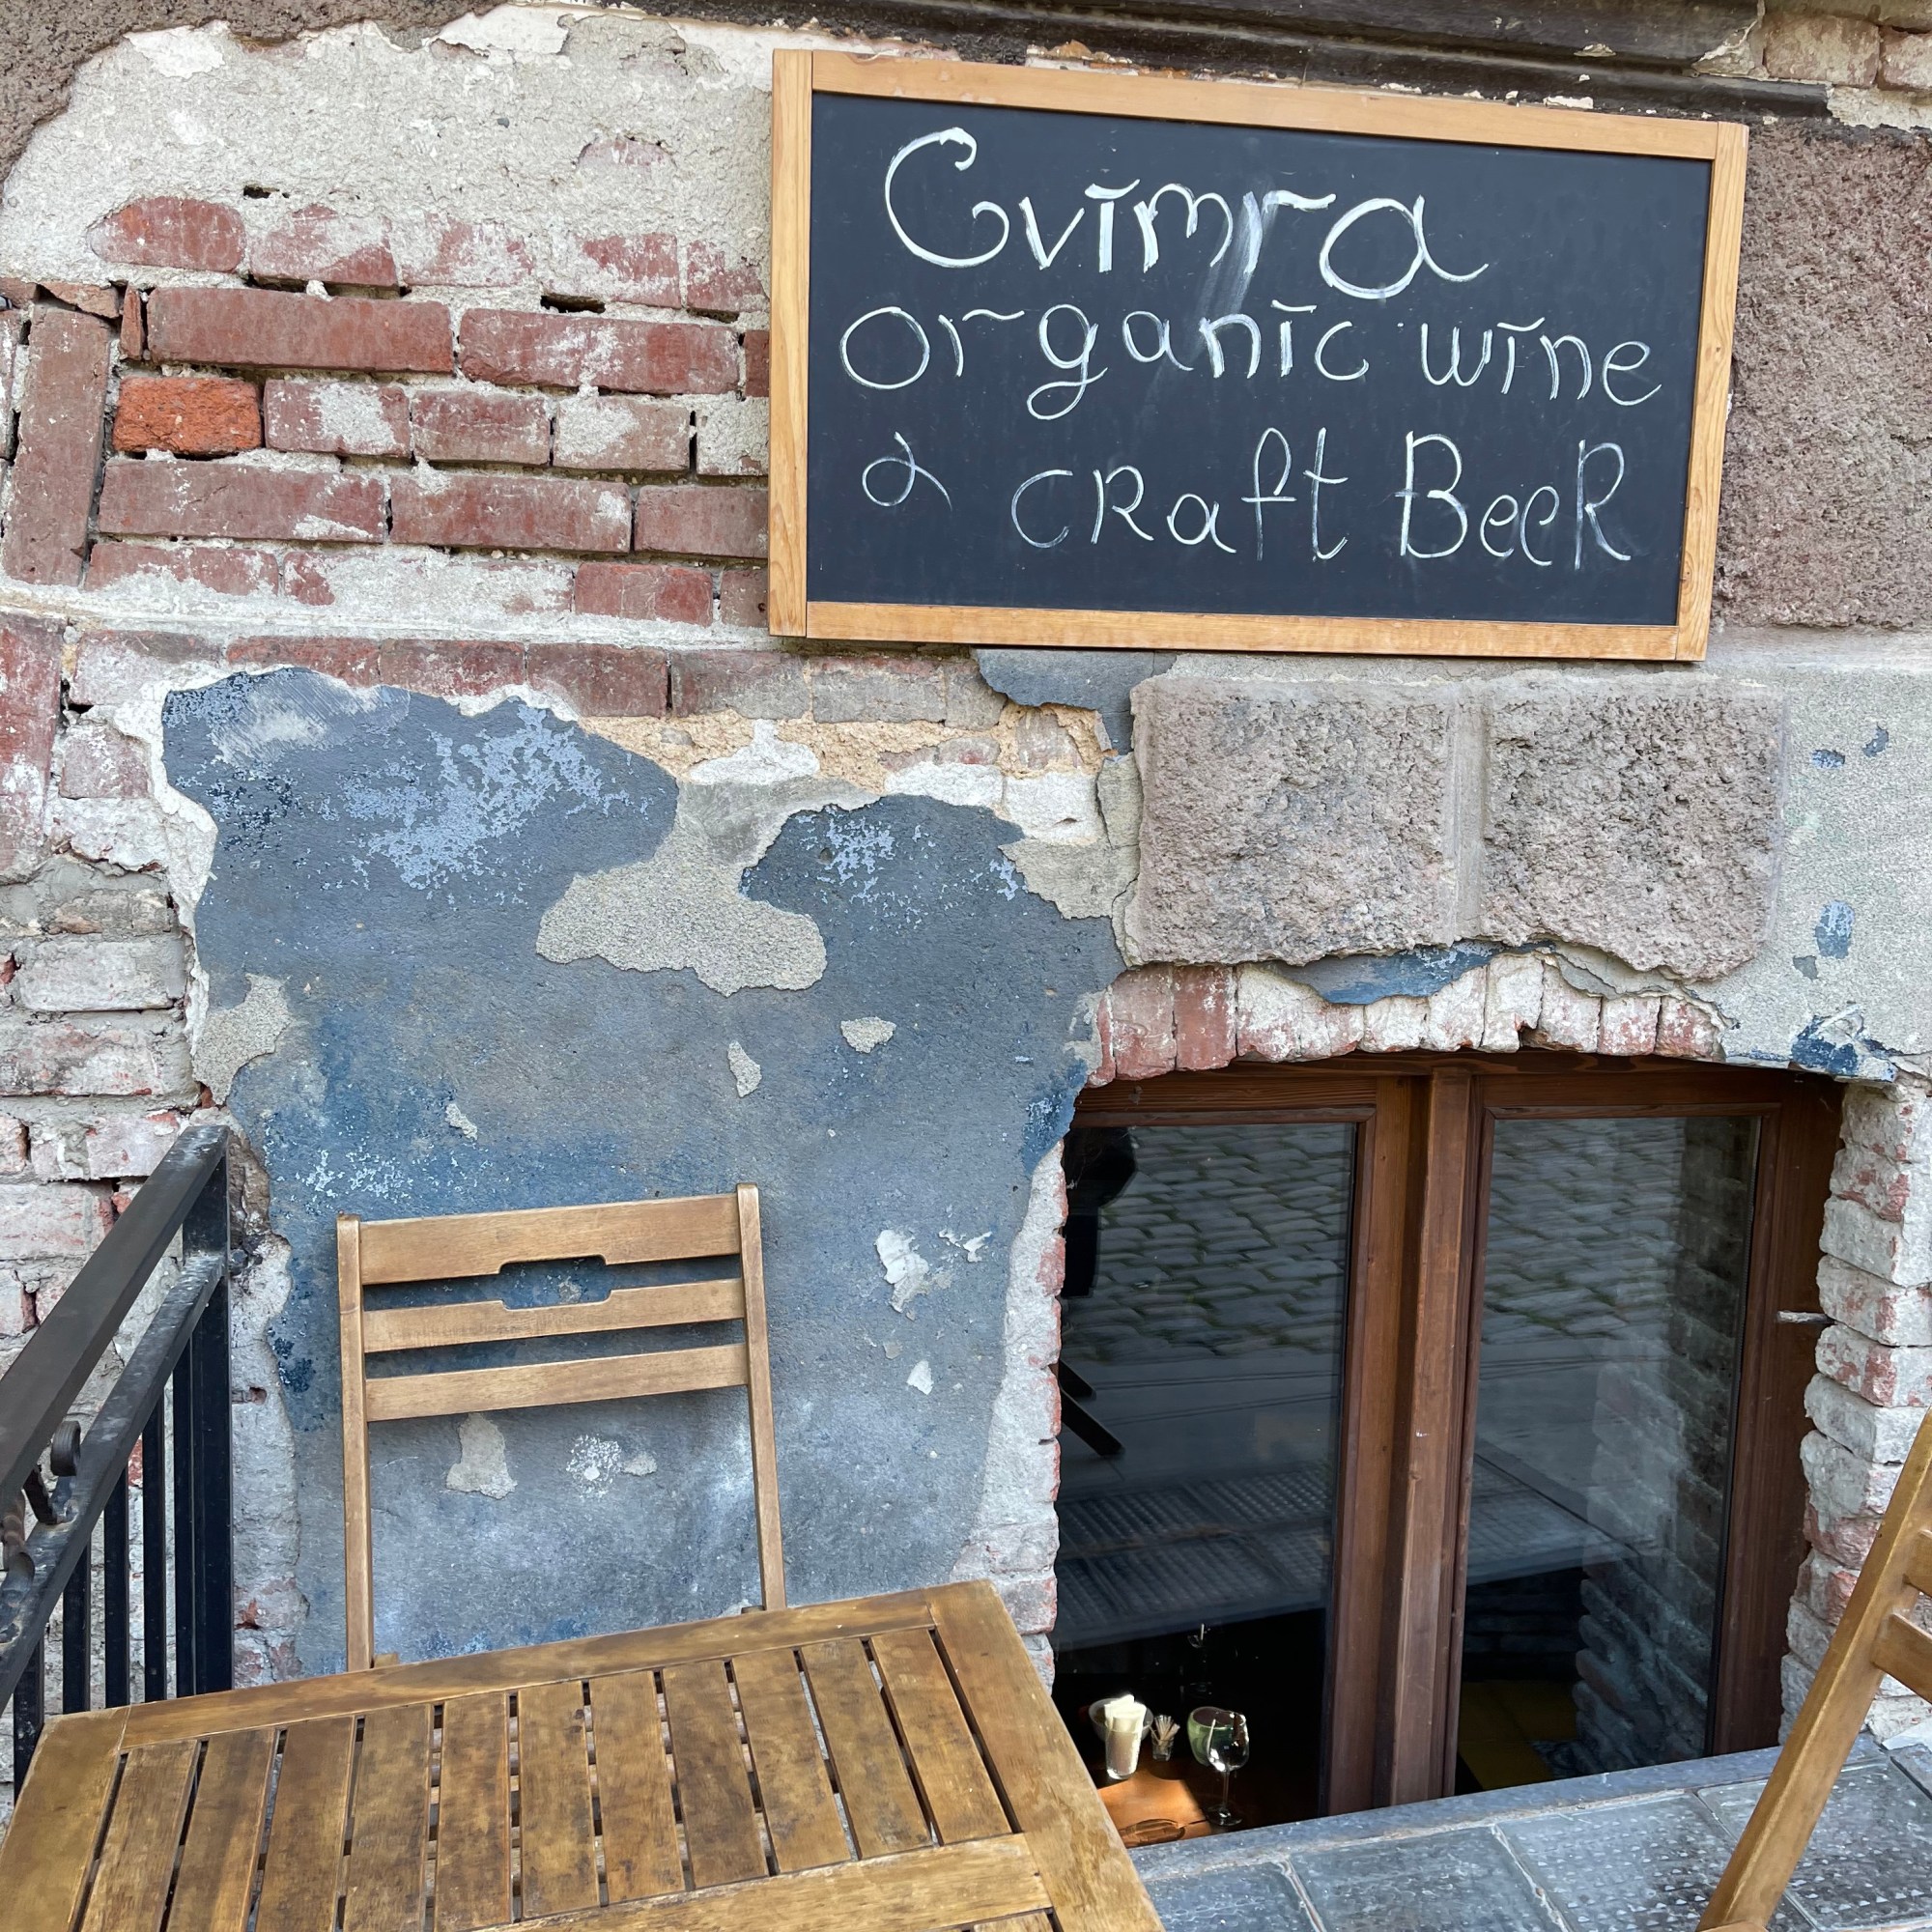 Gvimra
organic wine
& craft Beer